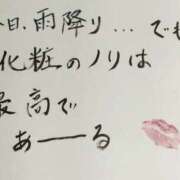 今日、雨降り…でも
化粧のノリは
最高で
あーーる